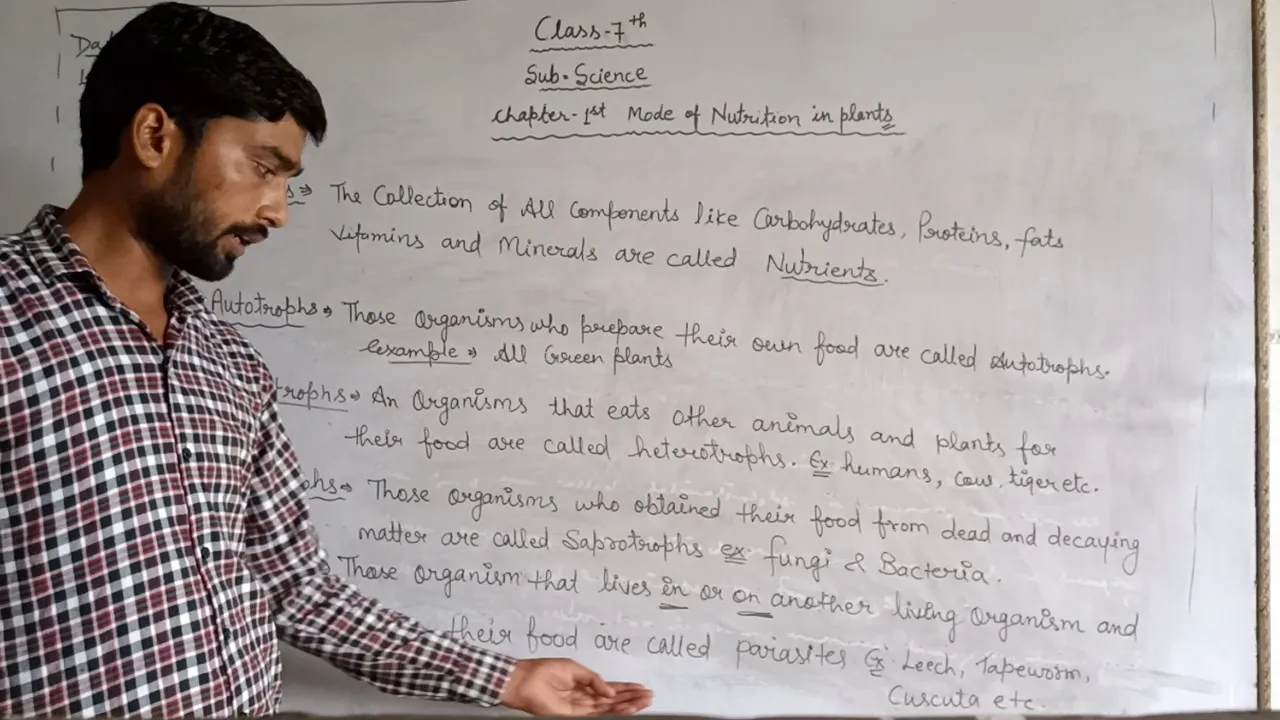 Da
Class-7th
Sub-Science
Chapter-1st Mode of Nutrition in plants
s ⇒ The Collection of All Components like Carbohydrates, Proteins, fats
Vitamins and Minerals are called Nutrients.
Autotrophs ⇒ Those Organisms who prepare their own food are called Autotrophs.
example ⇒ All Green plants
trophs ⇒ An Organisms that eats other animals and plants for
their food are called heterotrophs. Ex humans, Cow, tiger etc.
phs ⇒ Those organisms who obtained their food from dead and decaying
matter are called Saprotrophs ex fungi & Bacteria.
Those Organism that lives in or on another living Organism and
their food are called parasites Ex Leech, Tapeworm,
Cuscuta etc.